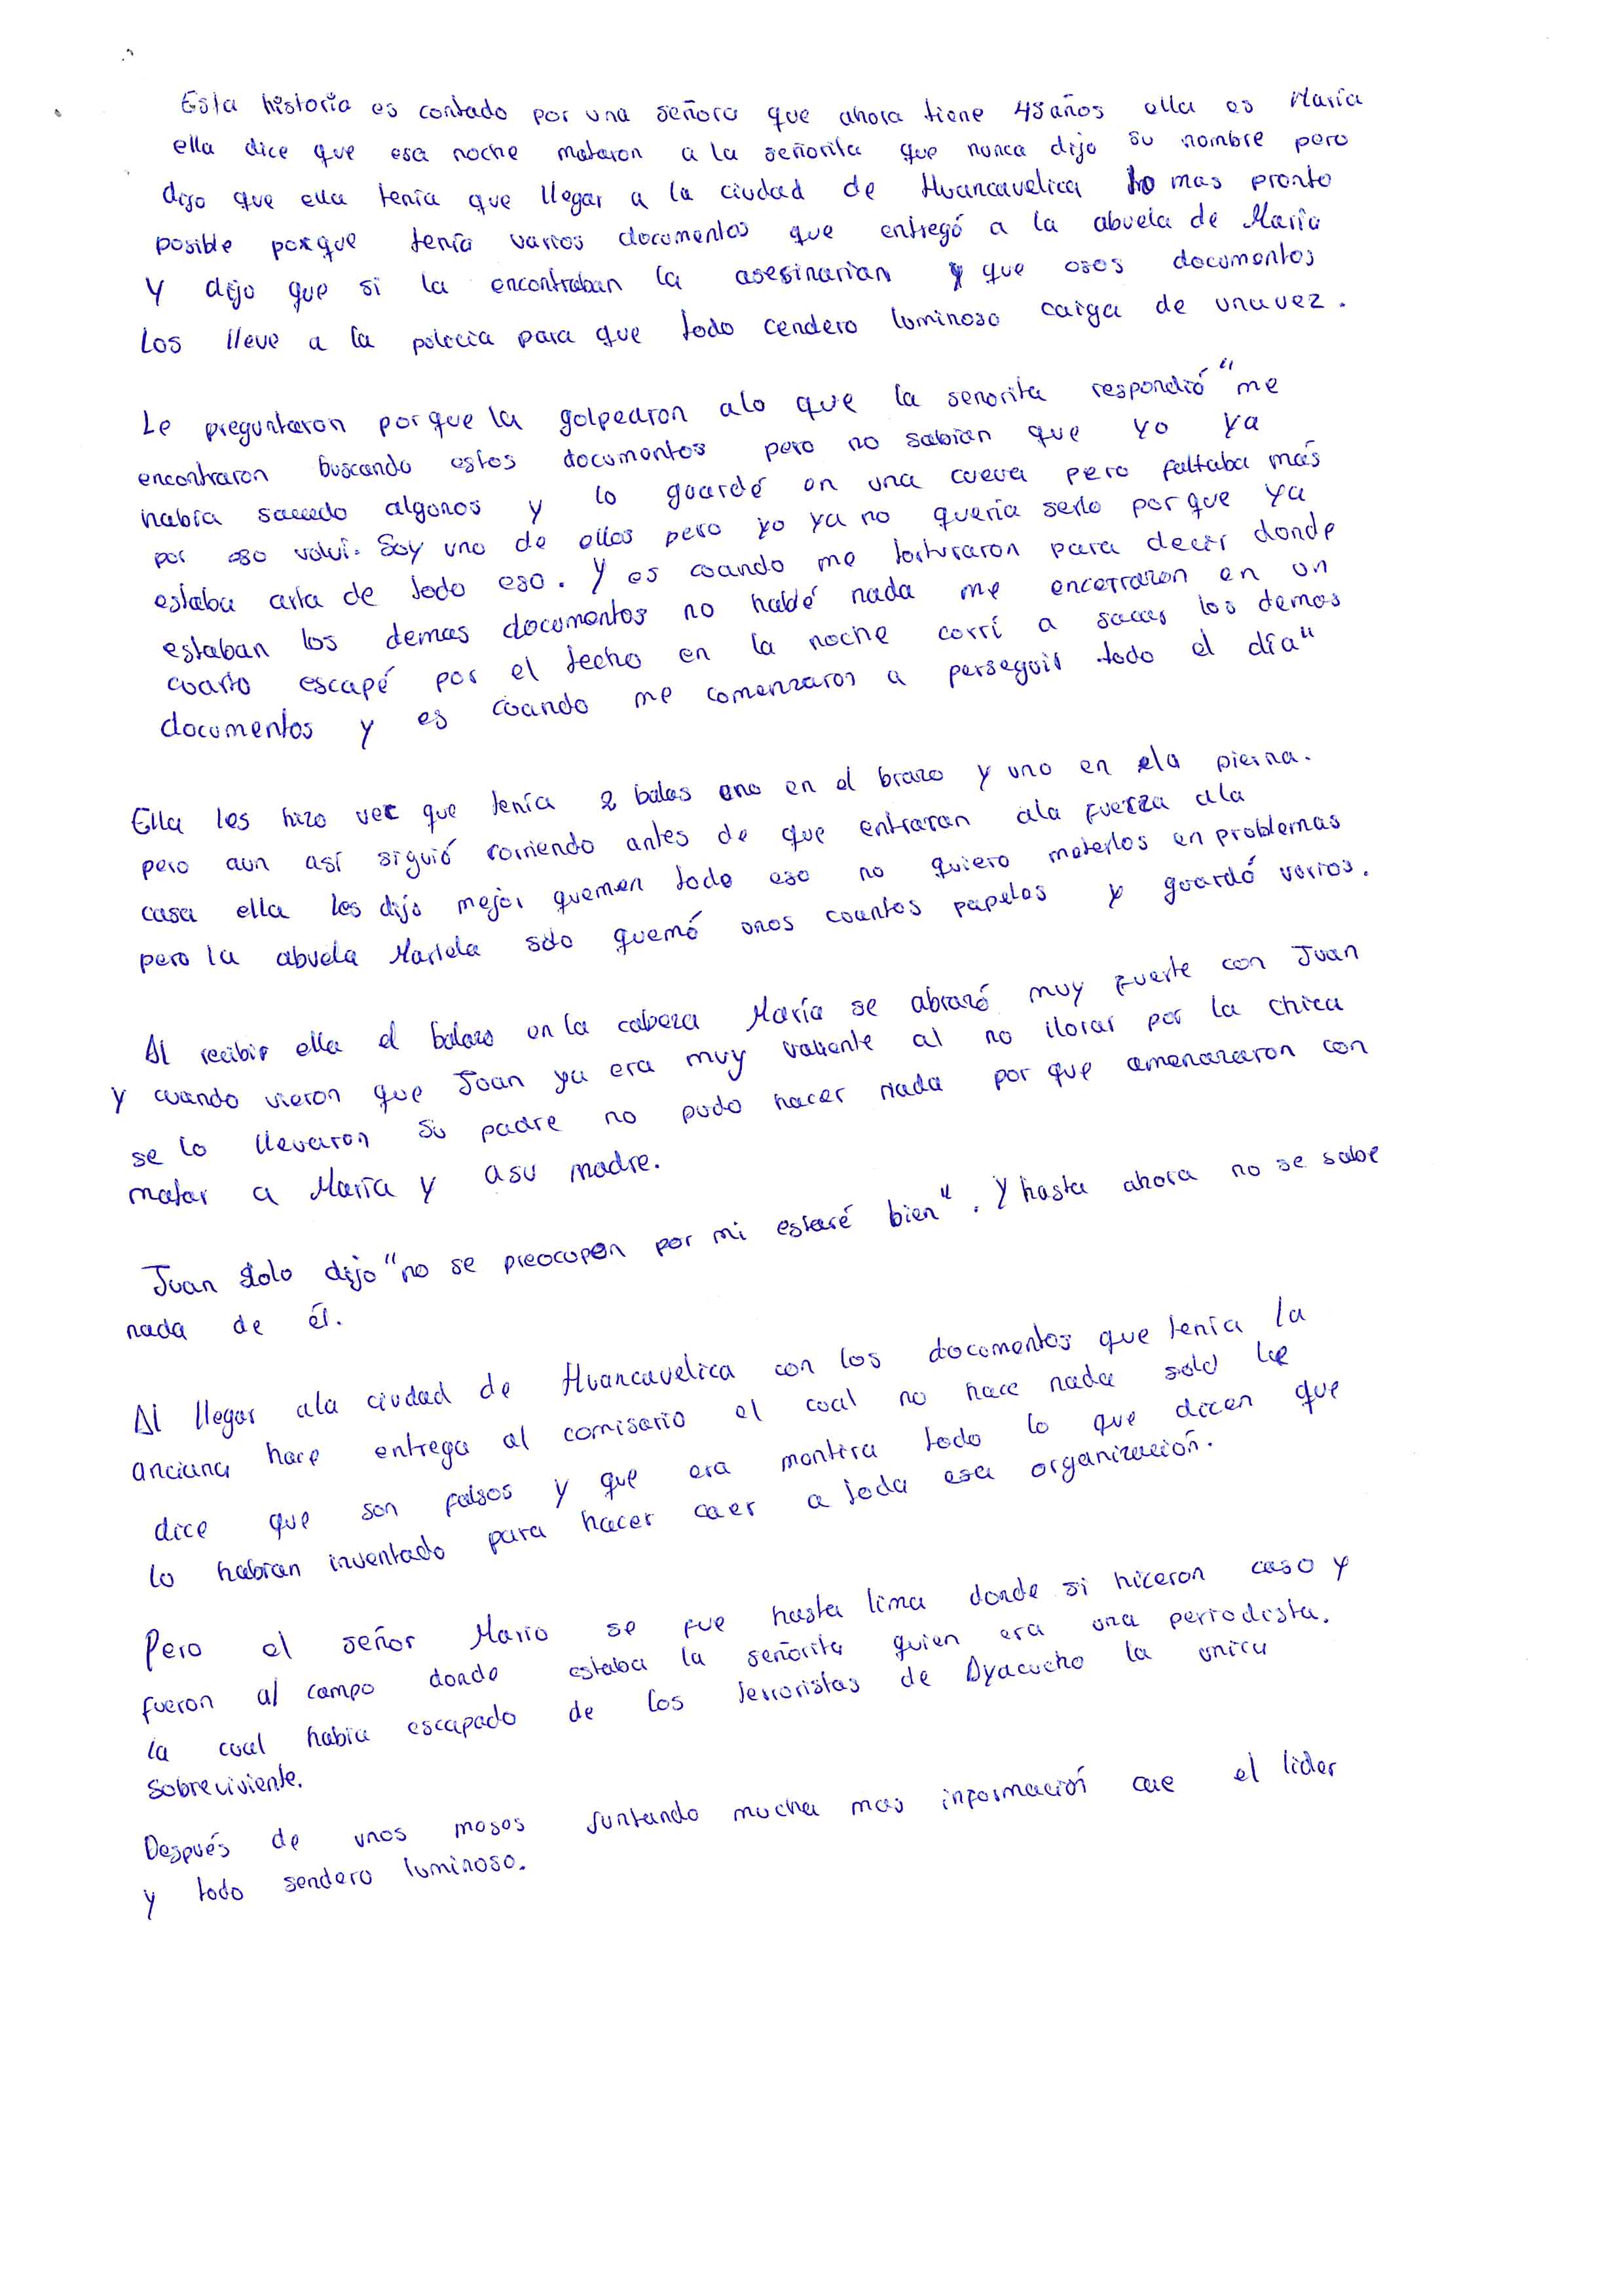 Esta historia es contado por una señora que ahora tiene 48 años ella es María
ella dice que esa noche mataron a la señorita que nunca dijo su nombre pero
dijo que ella tenía que llegar a la ciudad de Huancavelica lo mas pronto
posible porque tenía varios documentos que entregó a la abuela de María
Y dijo que si la encontraban la asesinarian y que esos documentos
Los lleve a la policia para que todo cendero luminoso caiga de unavez.
Le preguntaron porque la golpearon alo que la senorita respondió "me
encontraron buscando estos documentos pero no sabían que yo ya
había sacado algunos y lo guardé en una cueva pero faltaba más
por eso volví. Soy uno de ellos pero yo ya no quería serlo por que ya
estaba arta de todo eso. Y es cuando me torturaron para decir donde
estaban los demas documentos no hablé nada me encerraron en un
cuarto escapé por el techo en la noche corrí a sacar los demas
documentos y es cuando me comenzaron a perseguir todo el día"
Ella les hizo ver que tenía 2 balas uno en el brazo y uno en ela pierna.
pero aun así siguió corriendo antes de que entraran ala fuerza ala
casa ella les dijo mejor quemen todo eso no quiero meterlos en problemas
pero la abuela Mariela sólo quemó unos cuantos papeles y guardó varios.
Al recibir ella el balazo en la cabeza María se abrazó muy fuerte con Juan
y cuando vieron que Juan ya era muy valiente al no llorar por la chica
se lo llevaron su padre no pudo hacer nada por que amenazaron con
matar a María y asu madre.
Juan solo dijo "no se preocupen por mi estaré bien". Y hasta ahora no se sabe
nada de él.
Al llegar ala ciudad de Huancavelica con los documentos que tenía la
anciana hace entrega al comisario el cual no hace nada solo le
dice que son falsos y que era mentira todo lo que dicen que
lo habían inventado para hacer caer a toda esa organización.
Pero el señor Mario se fue hasta lima donde si hiceron caso y
fueron al campo donde estaba la señorita quien era una periodista.
la cual había escapado de los terroristas de Ayacucho la unica
sobreviviente.
Después de unos meses juntando mucha mas información cae el lider
y todo sendero luminoso.